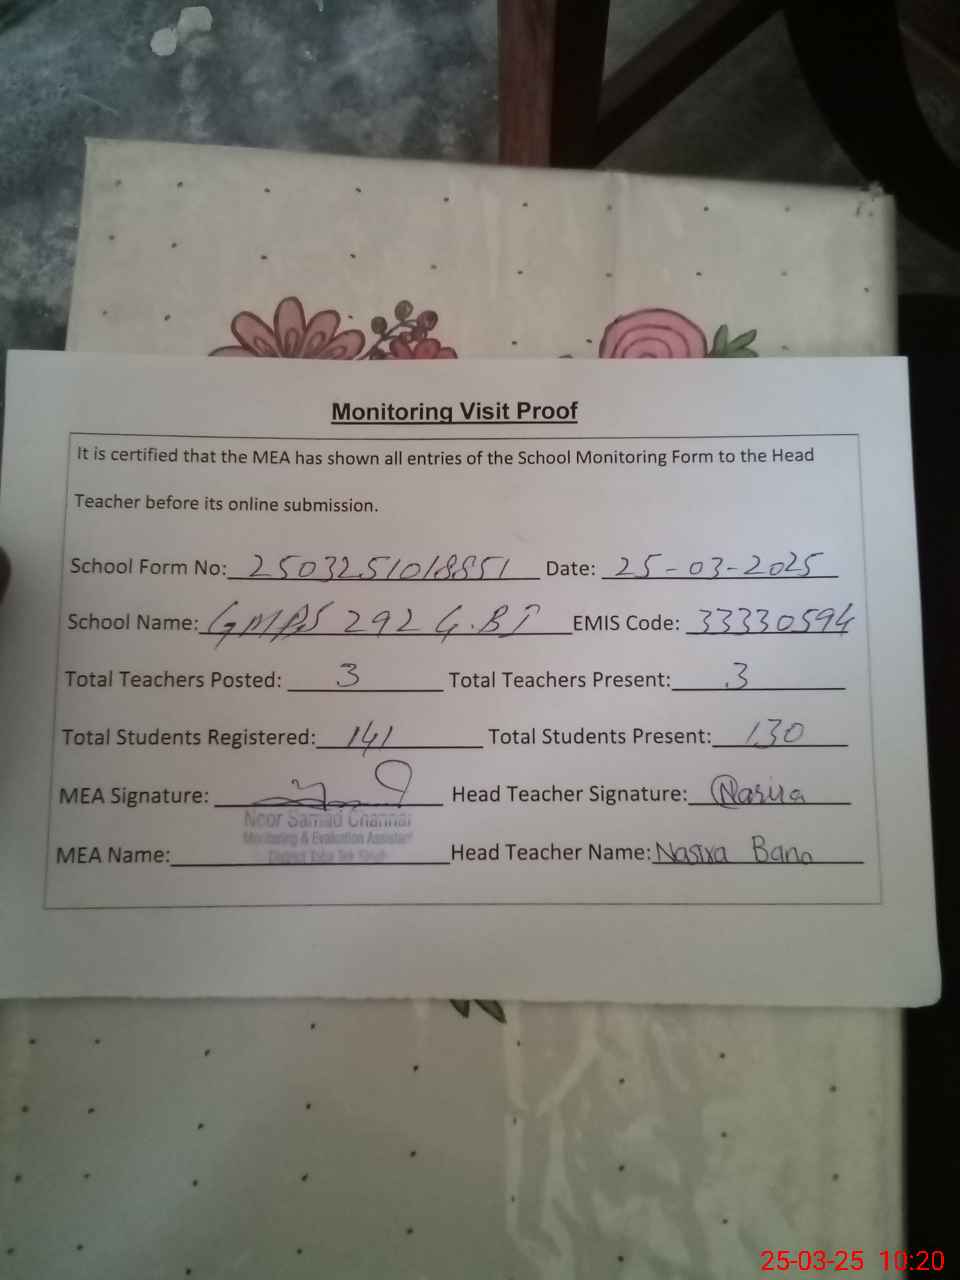 Monitoring Visit Proof
It is certified that the MEA has shown all entries of the School Monitoring Form to the Head
Teacher before its online submission.
School Form No: 2503251018851 Date: 25-03-2025
School Name: GMPS 292 G.BI EMIS Code: 33330594
Total Teachers Posted: 3 Total Teachers Present: 3
Total Students Registered: 141 Total Students Present: 130
MEA Signature: Head Teacher Signature: Nasira
Noor Samad Channar
Monitoring & Evaluation Assistant
District Toba Tek Singh
MEA Name: Head Teacher Name: Nasira Bano
25-03-25 10:20